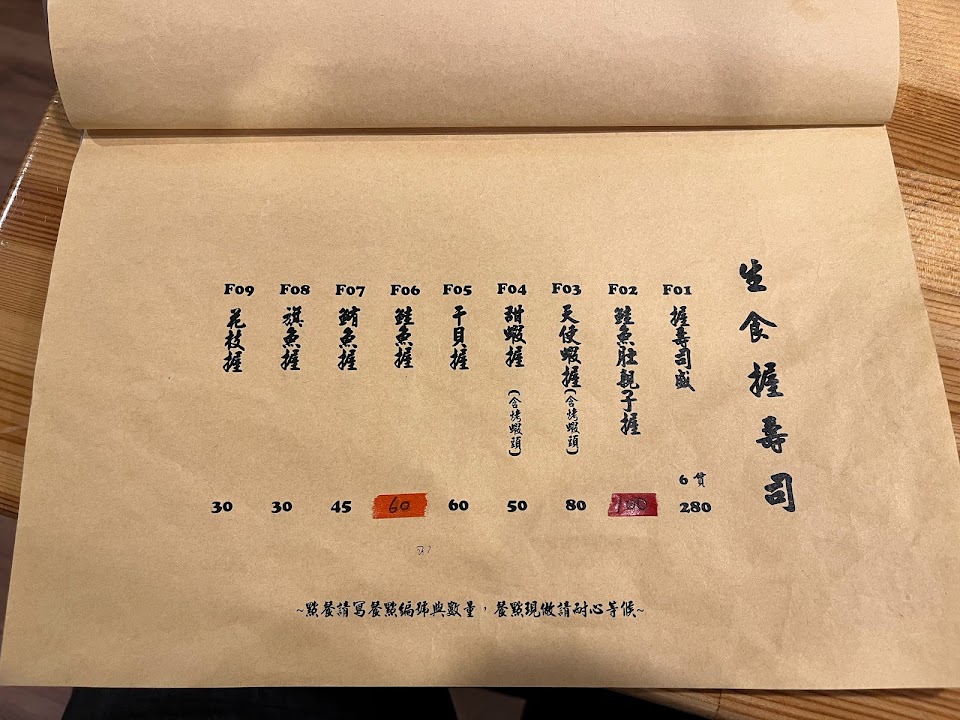 生食握壽司
F01 握壽司盛 6貫 280
F02 鮭魚肚親子握 100
F03 天使蝦握(含烤蝦頭) 80
F04 甜蝦握(含烤蝦頭) 50
F05 干貝握 60
F06 鮭魚握 60
F07 鮪魚握 45
F08 旗魚握 30
F09 花枝握 30
~點餐請寫餐點編號與數量，餐點現做請耐心等候~